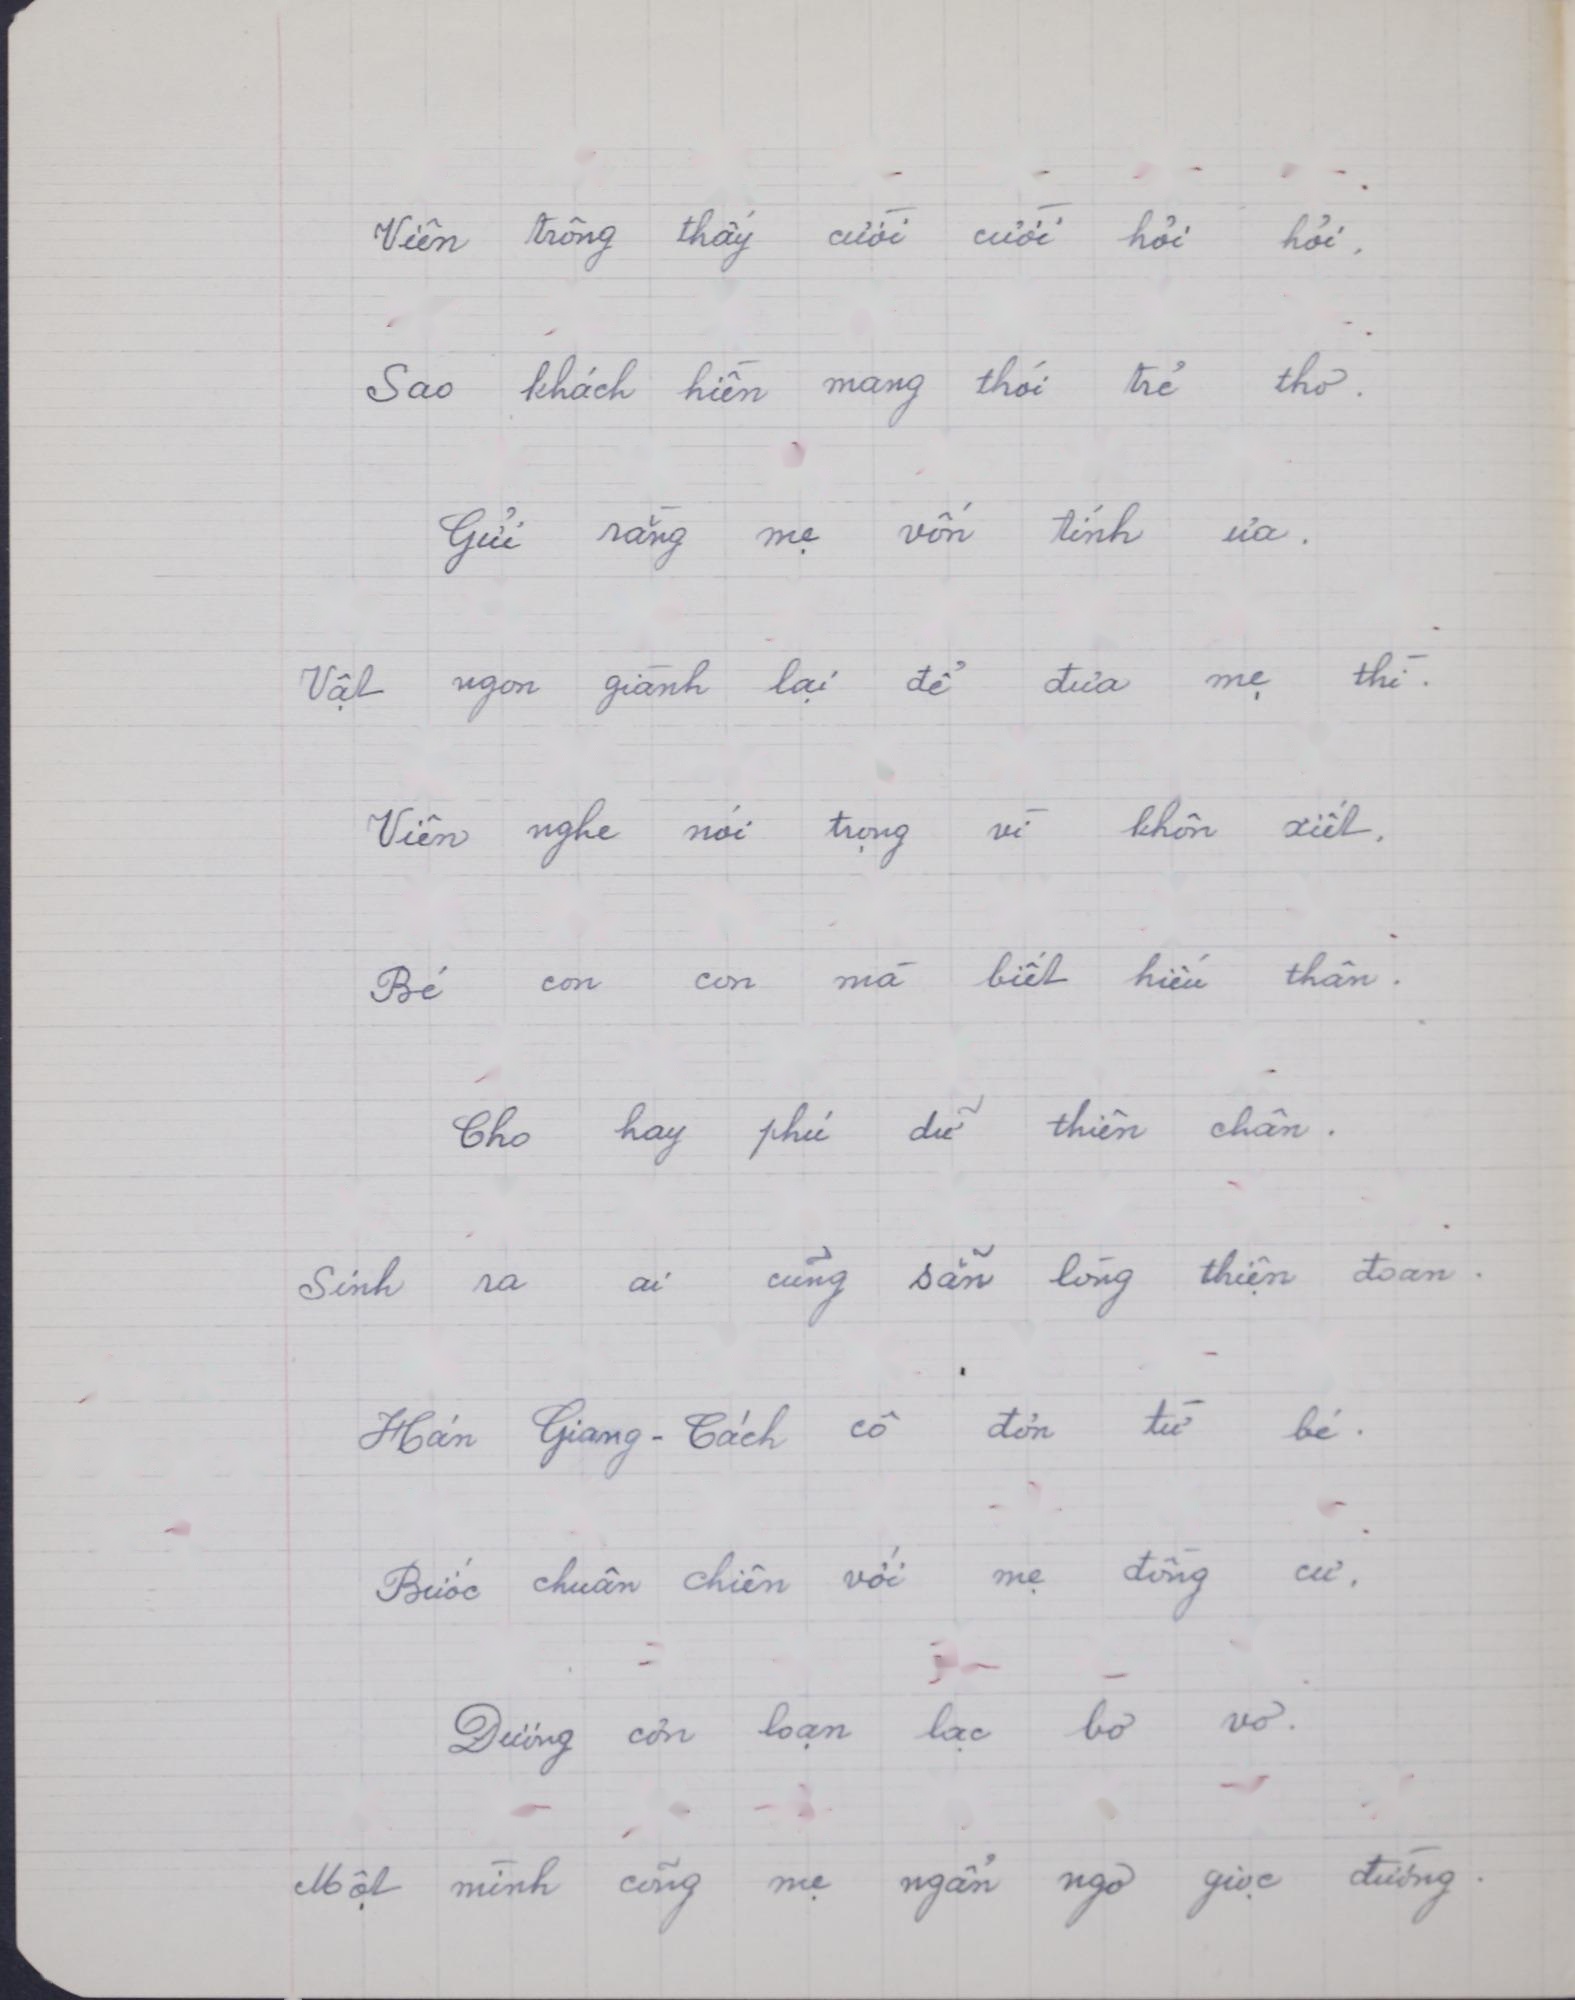 Viên trông thấy cười cười hỏi hỏi,
Sao khách hiền mang thói trẻ thơ.
Gửi rằng mẹ vốn tính ưa.
Vật ngon giành lại để đưa mẹ thì.
Viên nghe nói trọng vì khôn xiết,
Bé con con mà biết hiếu thân.
Cho hay phú dữ thiên chân.
Sinh ra ai cũng sẵn lòng thiện đoan.
Hán Giang-Cách cô đơn từ bé.
Bước chuân chiên với mẹ đồng cư,
Đương cơn loạn lạc bơ vơ.
Một mình cõng mẹ ngẩn ngơ giọc đường.